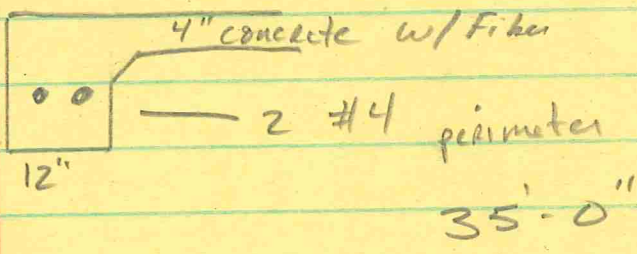 4" concrete w/ Fiber
2 #4 perimeter
12"
35'-0"